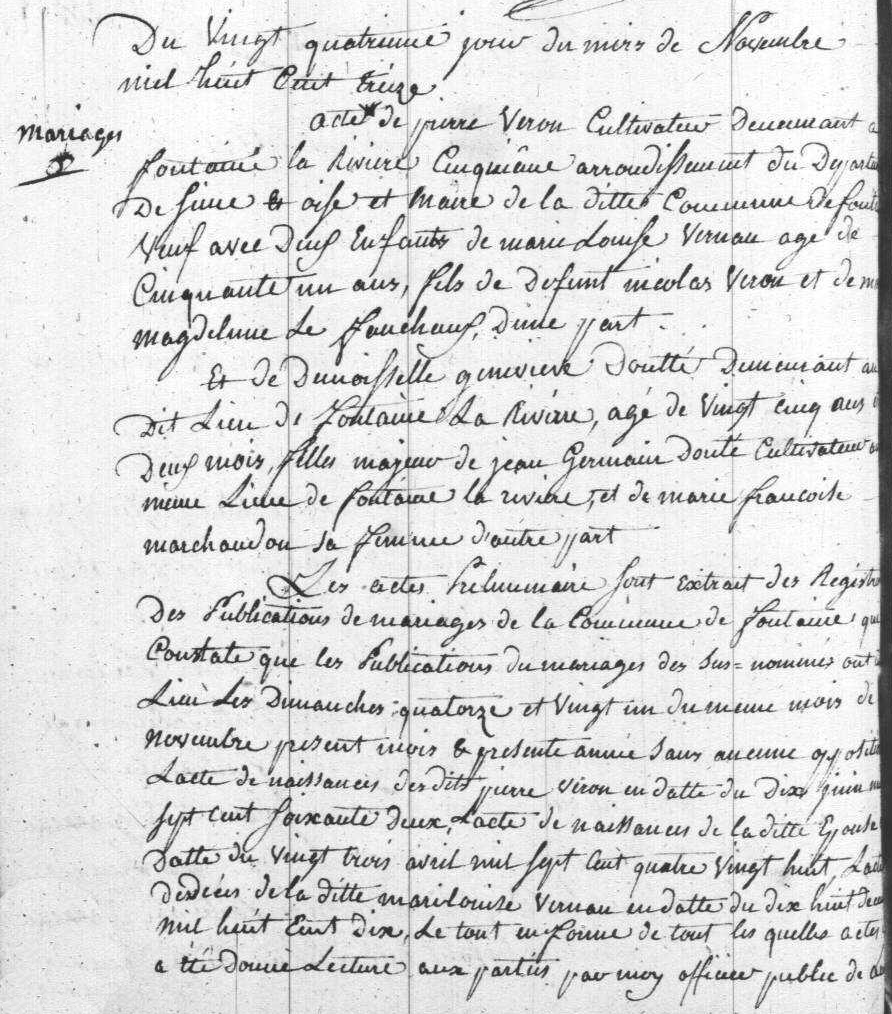 Du Vingt quatrieme jour du mois de Novembre
mil huit Cent treize
mariages
acte de pierre Veron Cultivateur Demeurant a
fontaine la Riviere Cinquiême arrondissement du Departe
De Seine et oise et Maire de la ditte Commune de fonta
Veuf avec Deux Enfants de marie Louise Vernau age de
Cinquante un ans, fils de Defunt nicolas Veron et de ma
magdelenne Le fauchaux, Dune part
Et de Demoisselle genevieve Doutté Demeurant au
Dit Lieu de fontaine La Riviere, agé de Vingt cinq ans
Deux mois, filles majeur de jean Germain Douté Cultivateur au
même Lieu de fontaine la riviere, et de marie francoise
marchaudon sa femme d'autre part
Les actes Preliminaire sont extrait des Registre
Des Publications de mariages de la Commune de fontaine que
Constate que les Publications du mariages des sus-nommés ont
Lieu Les Dimanches quatorze et Vingt un du meme mois de
Novembre present mois & presente année sans aucune oppositi
Lacte de naissances desdits pierre Veron en datte du Dix juin m
sept cent soixante deux, Lacte de naissances de la ditte Epouse
Datte du Vingt trois avril mil sept Cent quatre Vingt huit, Lacte
desdécés de la ditte marie louise Vernau en datte du dix huit
mil huit Cent Dix, Le tout en forme de tout les quelles actes
a été donné Lecture aux parties par moy officier public de